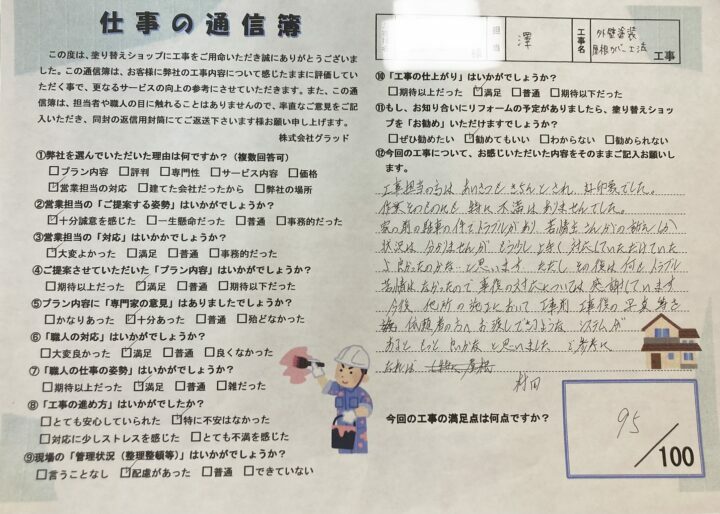 仕事の通信簿
この度は、塗り替えショップに工事をご用命いただき誠にありがとうございま
した。この通信簿は、お客様に弊社の工事内容について感じたままに評価してい
ただく事で、更なるサービスの向上の参考にさせていただきます。また、この通信
簿は、担当者や職人の目に触れることはありませんので、率直なご意見をご記
入いただき、同封の返信用封筒にてご返送下さいます様お願い申し上げます。
株式会社グラッド
①弊社を選んでいただいた理由は何ですか?(複数回答可)
□プラン内容 □評判 □専門性 □サービス内容 □価格
☑営業担当の対応 □建てた会社だったから □弊社の場所
②営業担当の「ご提案する姿勢」はいかがでしたか?
☑十分誠意を感じた □一生懸命だった □普通 □事務的だった
③営業担当の「対応」はいかかでしょうか?
☑大変よかった □満足 □普通 □事務的だった
④ご提案させていただいた「プラン内容」はいかがでしょうか?
□期待以上だった ☑満足 □普通 □期待以下だった
⑤プラン内容に「専門家の意見」はありましたでしょうか?
□かなりあった ☑十分あった □普通 □殆どなかった
⑥「職人の対応」はいかがでしょうか?
□大変良かった ☑満足 □普通 □良くなかった
⑦「職人の仕事の姿勢」はいかがでしょうか?
□期待以上だった ☑満足 □普通 □雑だった
⑧「工事の進め方」はいかがでしたか?
□とても安心していられた ☑特に不安はなかった
□対応に少しストレスを感じた □とても不満を感じた
⑨現場の「管理状況(整理整頓等)」はいかがでしょうか?
□言うことなし ☑配慮があった □普通 □できていない
様
担当
澤
工事名
外壁塗装
屋根カバー工法
工事
⑩「工事の仕上がり」はいかがでしょうか?
□期待以上だった ☑満足 □普通 □期待以下だった
⑪もし、お知り合いにリフォームの予定がありましたら、塗り替えショッ
プを「お勧め」いただけますでしょうか?
□ぜひ勧めたい ☑勧めてもいい □わからない □勧められない
⑫今回の工事について、お感じいただいた内容をそのままご記入お願いし
ます。
工事担当の方は あいさつも きちんとされ、好印象でした。
作業そのものにも 特に 不満は ありませんでした。
家の前の駐車の件でトラブルがあり
状況は 分かりませんが もう少し 上手く 対応していただけていたら
良かったのかな…と思います。ただし その後は何もトラブル
苦情はなかったので 事後の対応については 感謝しています。
今後 他所の施工において 工事前 工事後の 写真 等を
依頼者の方へ お渡しできるような システムが
あると もっと 良いかな と 思いました ご参考に
なれば
村田
今回の工事の満足点は何点ですか?
95
/100